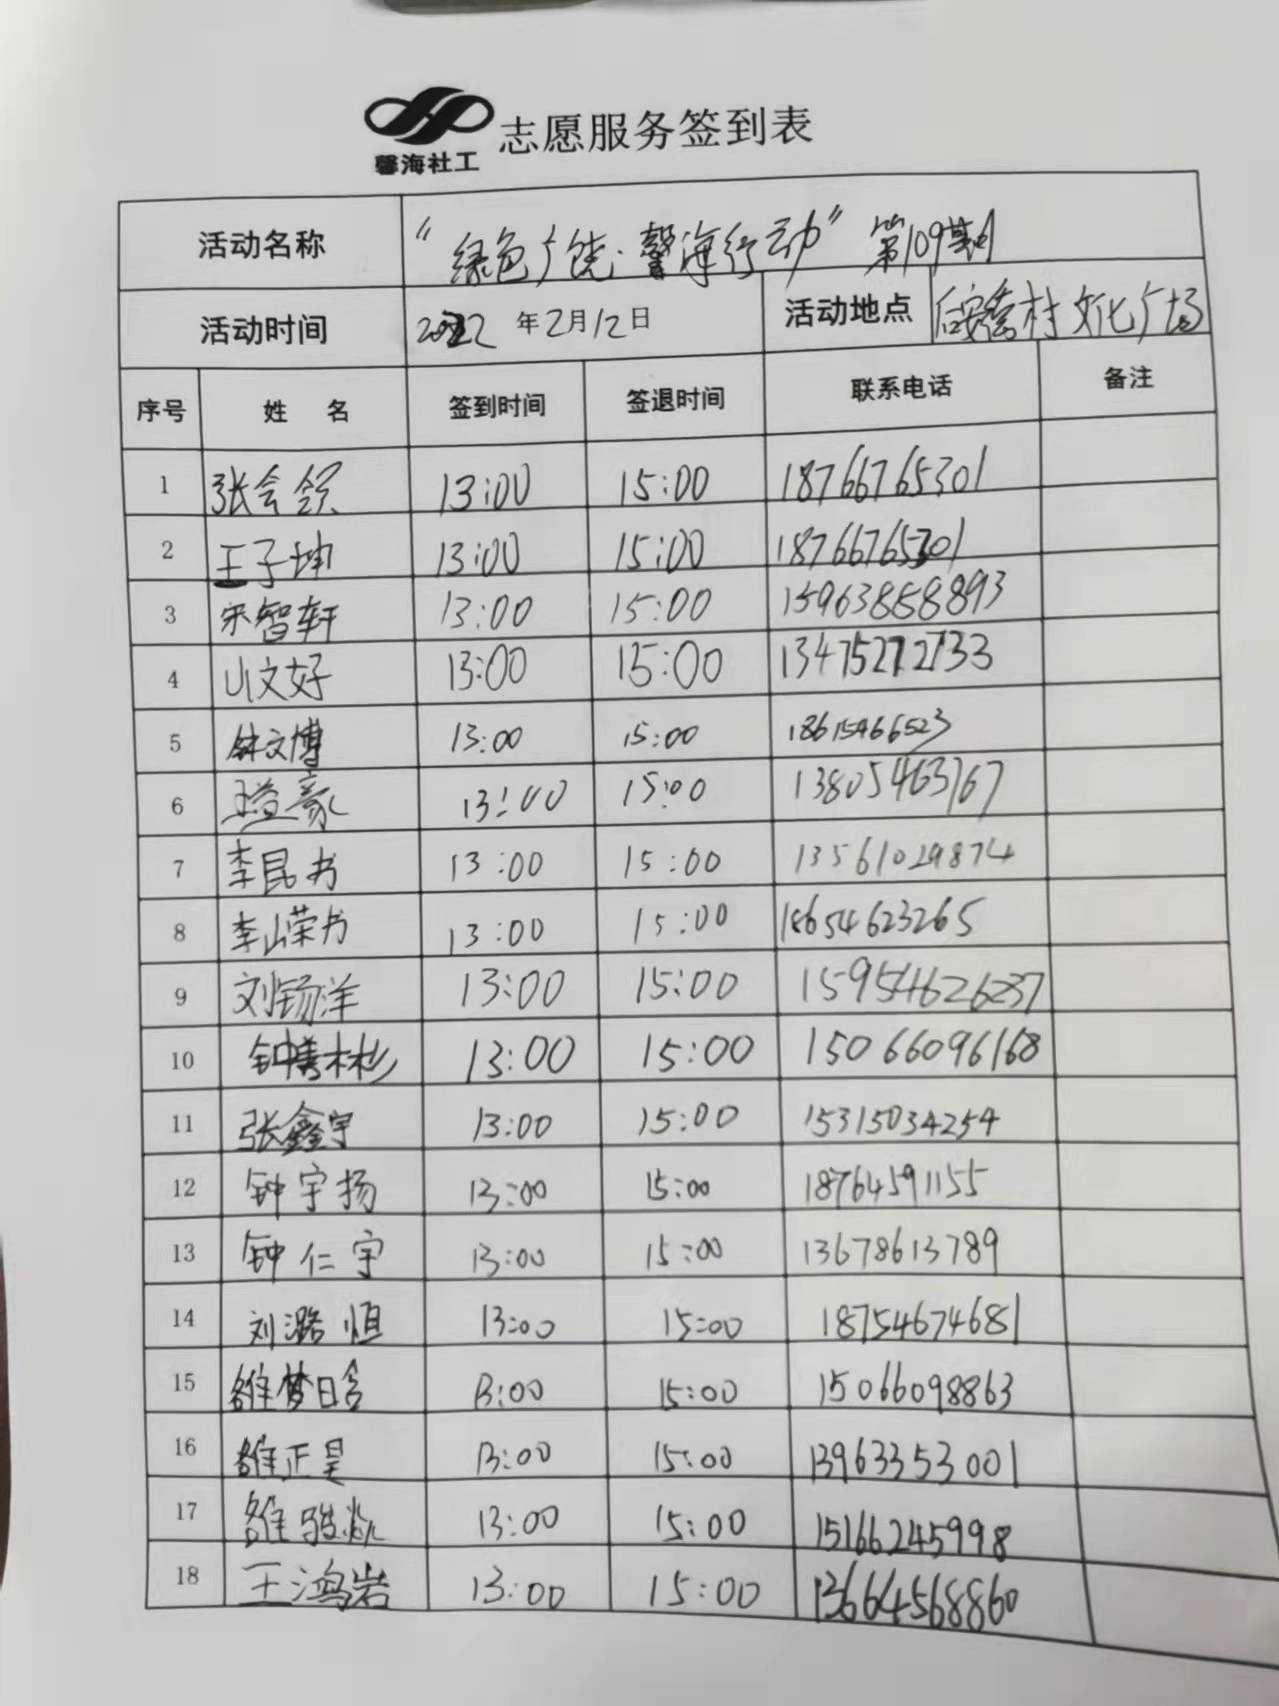 馨海社工
志愿服务签到表
活动名称 “绿色广饶·馨海行动”第109期
活动时间 2022年2月12日 活动地点 村文化广场
序号 姓 名 签到时间 签退时间 联系电话 备注
1 张会领 13:00 15:00 18766765301
2 王子坤 13:00 15:00 18766765301
3 宋智轩 13:00 15:00 15963858893
4 文好 13:00 15:00 13475272733
5 钟文博 13:00 15:00 18615466523
6 13:00 15:00 13805463767
7 李昆书 13:00 15:00 13561029874
8 李荣书 13:00 15:00 18654623265
9 刘钖洋 13:00 15:00 15954626237
10 13:00 15:00 15066096168
11 张鑫宇 13:00 15:00 15315034254
12 钟宇扬 13:00 15:00 18764591155
13 钟仁宇 13:00 15:00 13678613789
14 刘潞恒 13:00 15:00 18754674681
15 雒梦晗 13:00 15:00 15066098863
16 雒正昊 13:00 15:00 13963353001
17 雒骏焱 13:00 15:00 15166245998
18 王鸿岩 13:00 15:00 13664568860